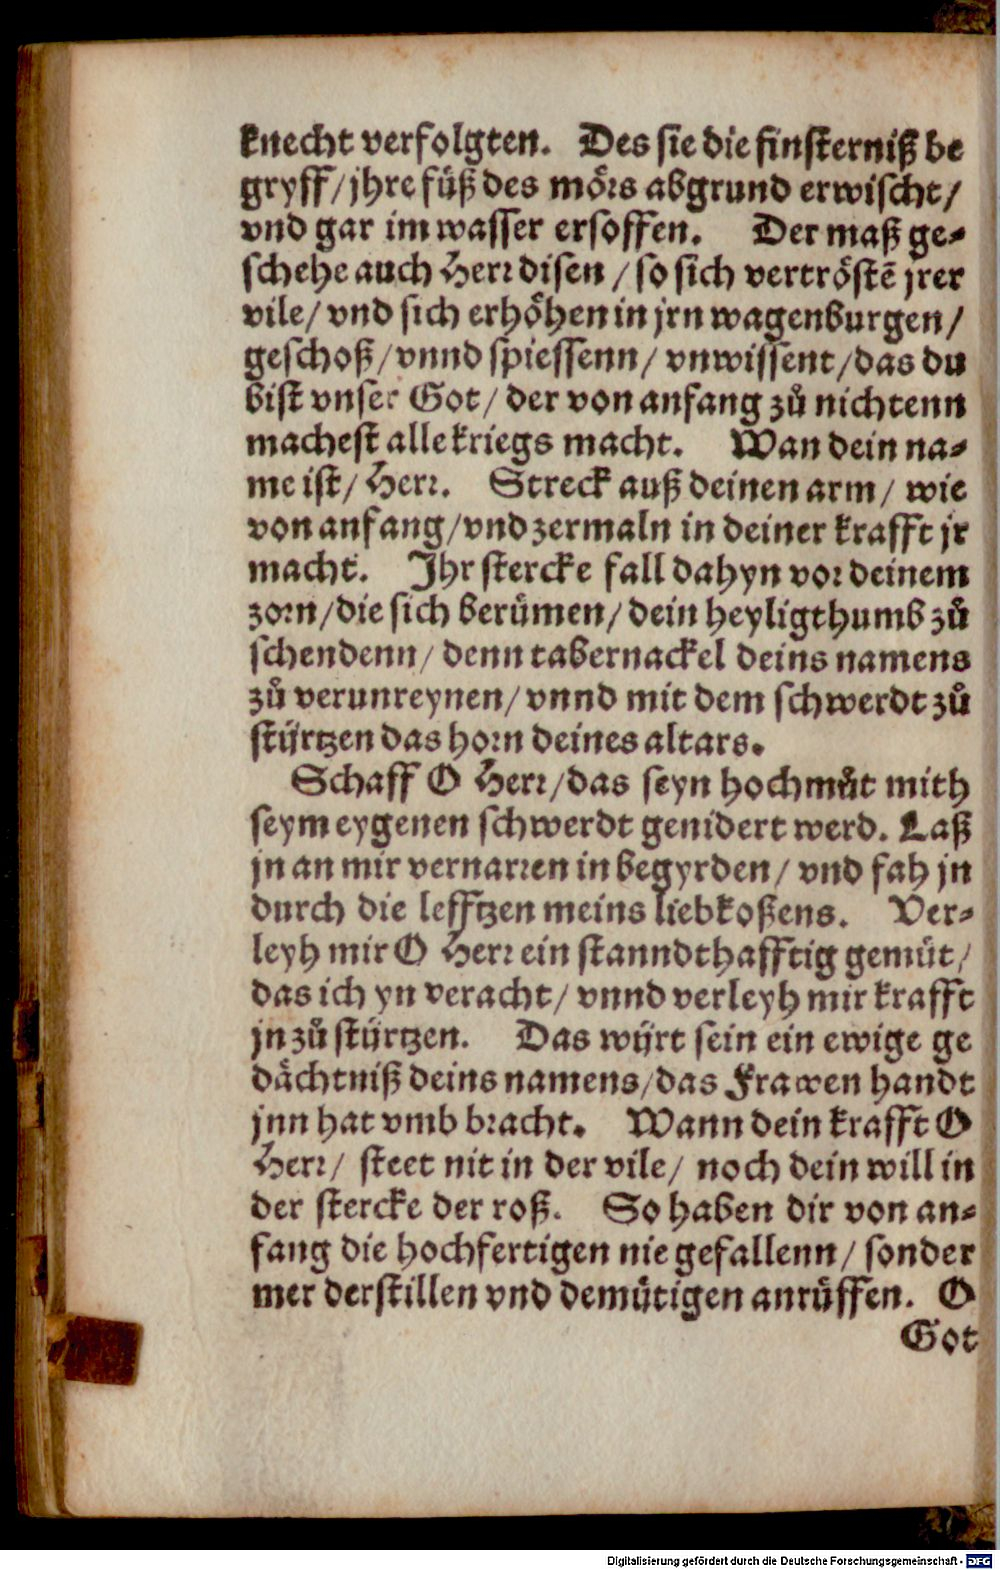 knecht verfolgten. Des sie die finsterniß be
gryff/jhre fuͤß des moͤrs abgrund erwischt/
vnd gar im wasser ersoffen. Der maß ge-
schehe auch Herr disen / so sich vertroͤstẽ jrer
vile/ vnd sich erhoͤhen in jrn wagenburgen/
geschoß/vnnd spiessenn/ vnwissent/das du
bist vnser Got/ der von anfang zů nichtenn
machest alle kriegs macht. Wan dein na-
me ist/ Herr. Streck auß deinen arm/ wie
von anfang/vnd zermaln in deiner krafft jr
macht. Ihr stercke fall dahyn vor deinem
zorn/die sich beruͤmen/dein heyligthumb zů
schendenn/ denn tabernackel deins namens
zů verunreynen/ vnnd mit dem schwerdt zů
stuͤrtzen das horn deines altars.
Schaff O Herr/das seyn hochmůt mith
seym eygenen schwerdt genidert werd. Laß
jn an mir vernarren in begyrden/ vnd fah jn
durch die lefftzen meins liebkoßens. Ver-
leyh mir O Herr ein stanndthafftig gemuͤt/
das ich yn veracht/ vnnd verleyh mir krafft
jn zů stuͤrtzen. Das wuͤrt sein ein ewige ge
daͤchtniß deins namens/das Frawen handt
jnn hat vmb bracht. Wann dein krafft O
Herr/ steet nit in der vile/ noch dein will in
der stercke der roß. So haben dir von an-
fang die hochfertigen nie gefallenn/ sonder
mer der stillen vnd demuͤtigen anruͤffen. O
Got
Digitalisierung gefördert durch die Deutsche Forschungsgemeinschaft - DFG